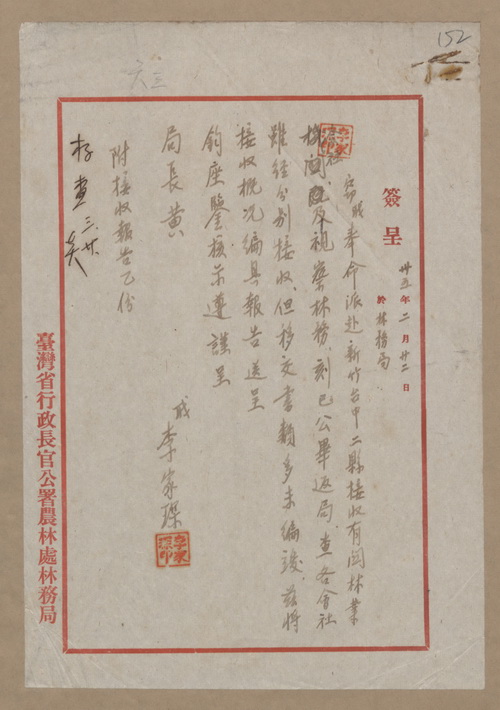 152
六三
簽呈
卅五年二月廿二日
於林務局
竊職奉命派赴新竹台中二縣接收有関林業
機関及視察林務刻已公畢返局查各會社
雖經分別接收但移交書類多未編竣茲將
接收概況編具報告送呈
鈞座鑒核示遵謹呈
局長黃
職李家琛
附接收報告乙份
存查三.廿.
臺灣省行政長官公署農林處林務局